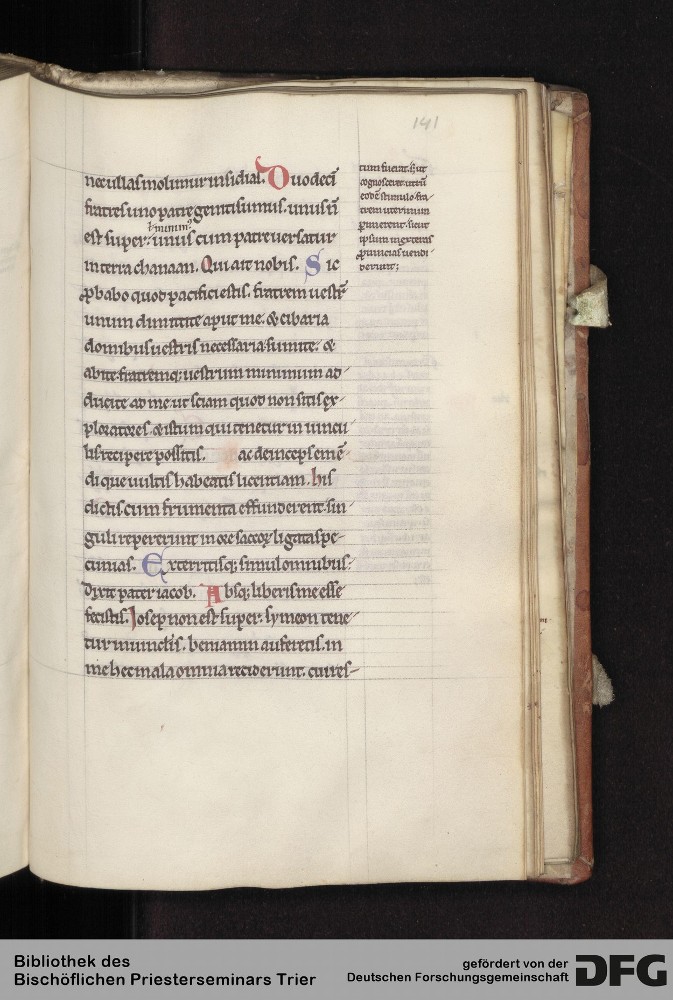 141
nec ullas molimur insidias. Duodeci̅
fratres uno patre geniti sumus. unus n̅
ł minim᷒
est super. unus cum patre uersatur
in terra chanaan. Qui ait nobis. Sic
ꝓbabo quod pacifici estis. fratrem uestr̅
unum dimittite aput me. & cibaria
domibus uestris necessaria sumite. &
abite. fratremq; uestrum minimum ad
ducite ad me. ut sciam quod non sitis ex
ploratores. & istum qui tenetur in uincu
lis recipere possitis. ac deinceps eme̅
di que uultis habeatis licentiam. his
dictis. cum frumenta effunderent. sin
guli repererunt in ore saccoꝝ ligatas pe
cunias. Exterritisq; simul omnibus.
dixit pater iacob. Absq; liberis me esse
fecistis. Josep non est super. symeon tene
tur in uinclis. beniamin auferetis. in
me hec mala omnia reciderunt. cui res
tum fuerat. s; ut
cognosceret utru̅
eode̅ stimulo fra
trem uterinum
ꝑimerent. sicut
ipsum in exteras
ꝓuincias uendi
derunt;
Bibliothek des
Bischöflichen Priesterseminars Trier
gefördert von der
Deutschen Forschungsgemeinschaft
DFG